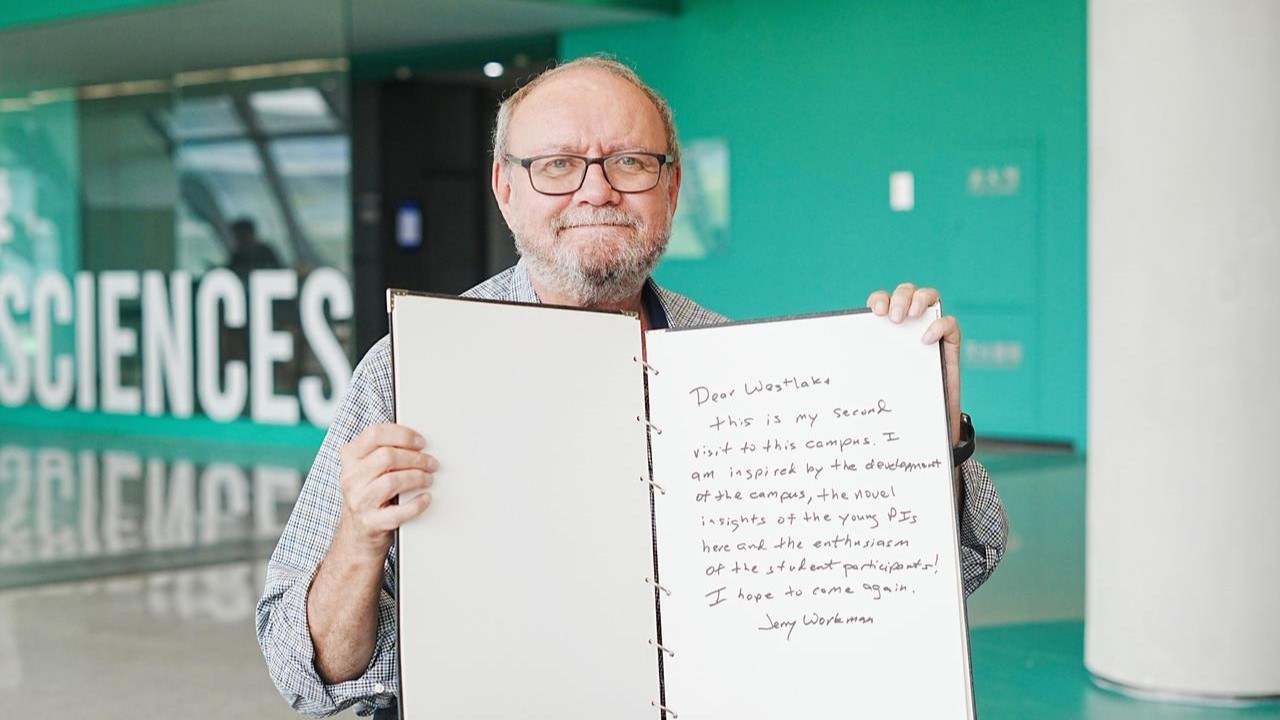 SCIENCES
Dear Westlake
this is my second
visit to this campus. I
am inspired by the development
of the campus, the novel
insights of the young PIs
here and the enthusiasm
of the student participants!
I hope to come again.
Jerry Workman